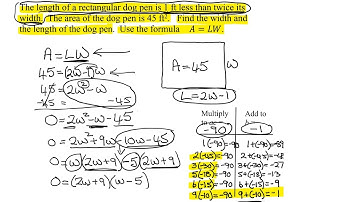 The length of a rectangular dog pen is 1 ft less than twice its
width. The area of the dog pen is 45 ft². Find the width and
the length of the dog pen. Use the formula A = LW.
A = LW
45 = (2w-1)w
45 = 2w²-w
-45 -45
0 = 2w²-w-45
0 = 2w²+9w-10w-45
0 = w(2w+9)-5(2w+9)
0 = (2w+9)(w-5)
A=45
w
L=2w-1
Multiply Add to
-90 -1
1(-90)=-90 1+(-90)=-89
2(-45)=-90 2+(-45)=-43
3(-30)=-90 3+(-30)=-27
5(-18)=-90 5+(-18)=-13
6(-15)=-90 6+(-15)=-9
9(-10)=-90 9+(-10)=-1